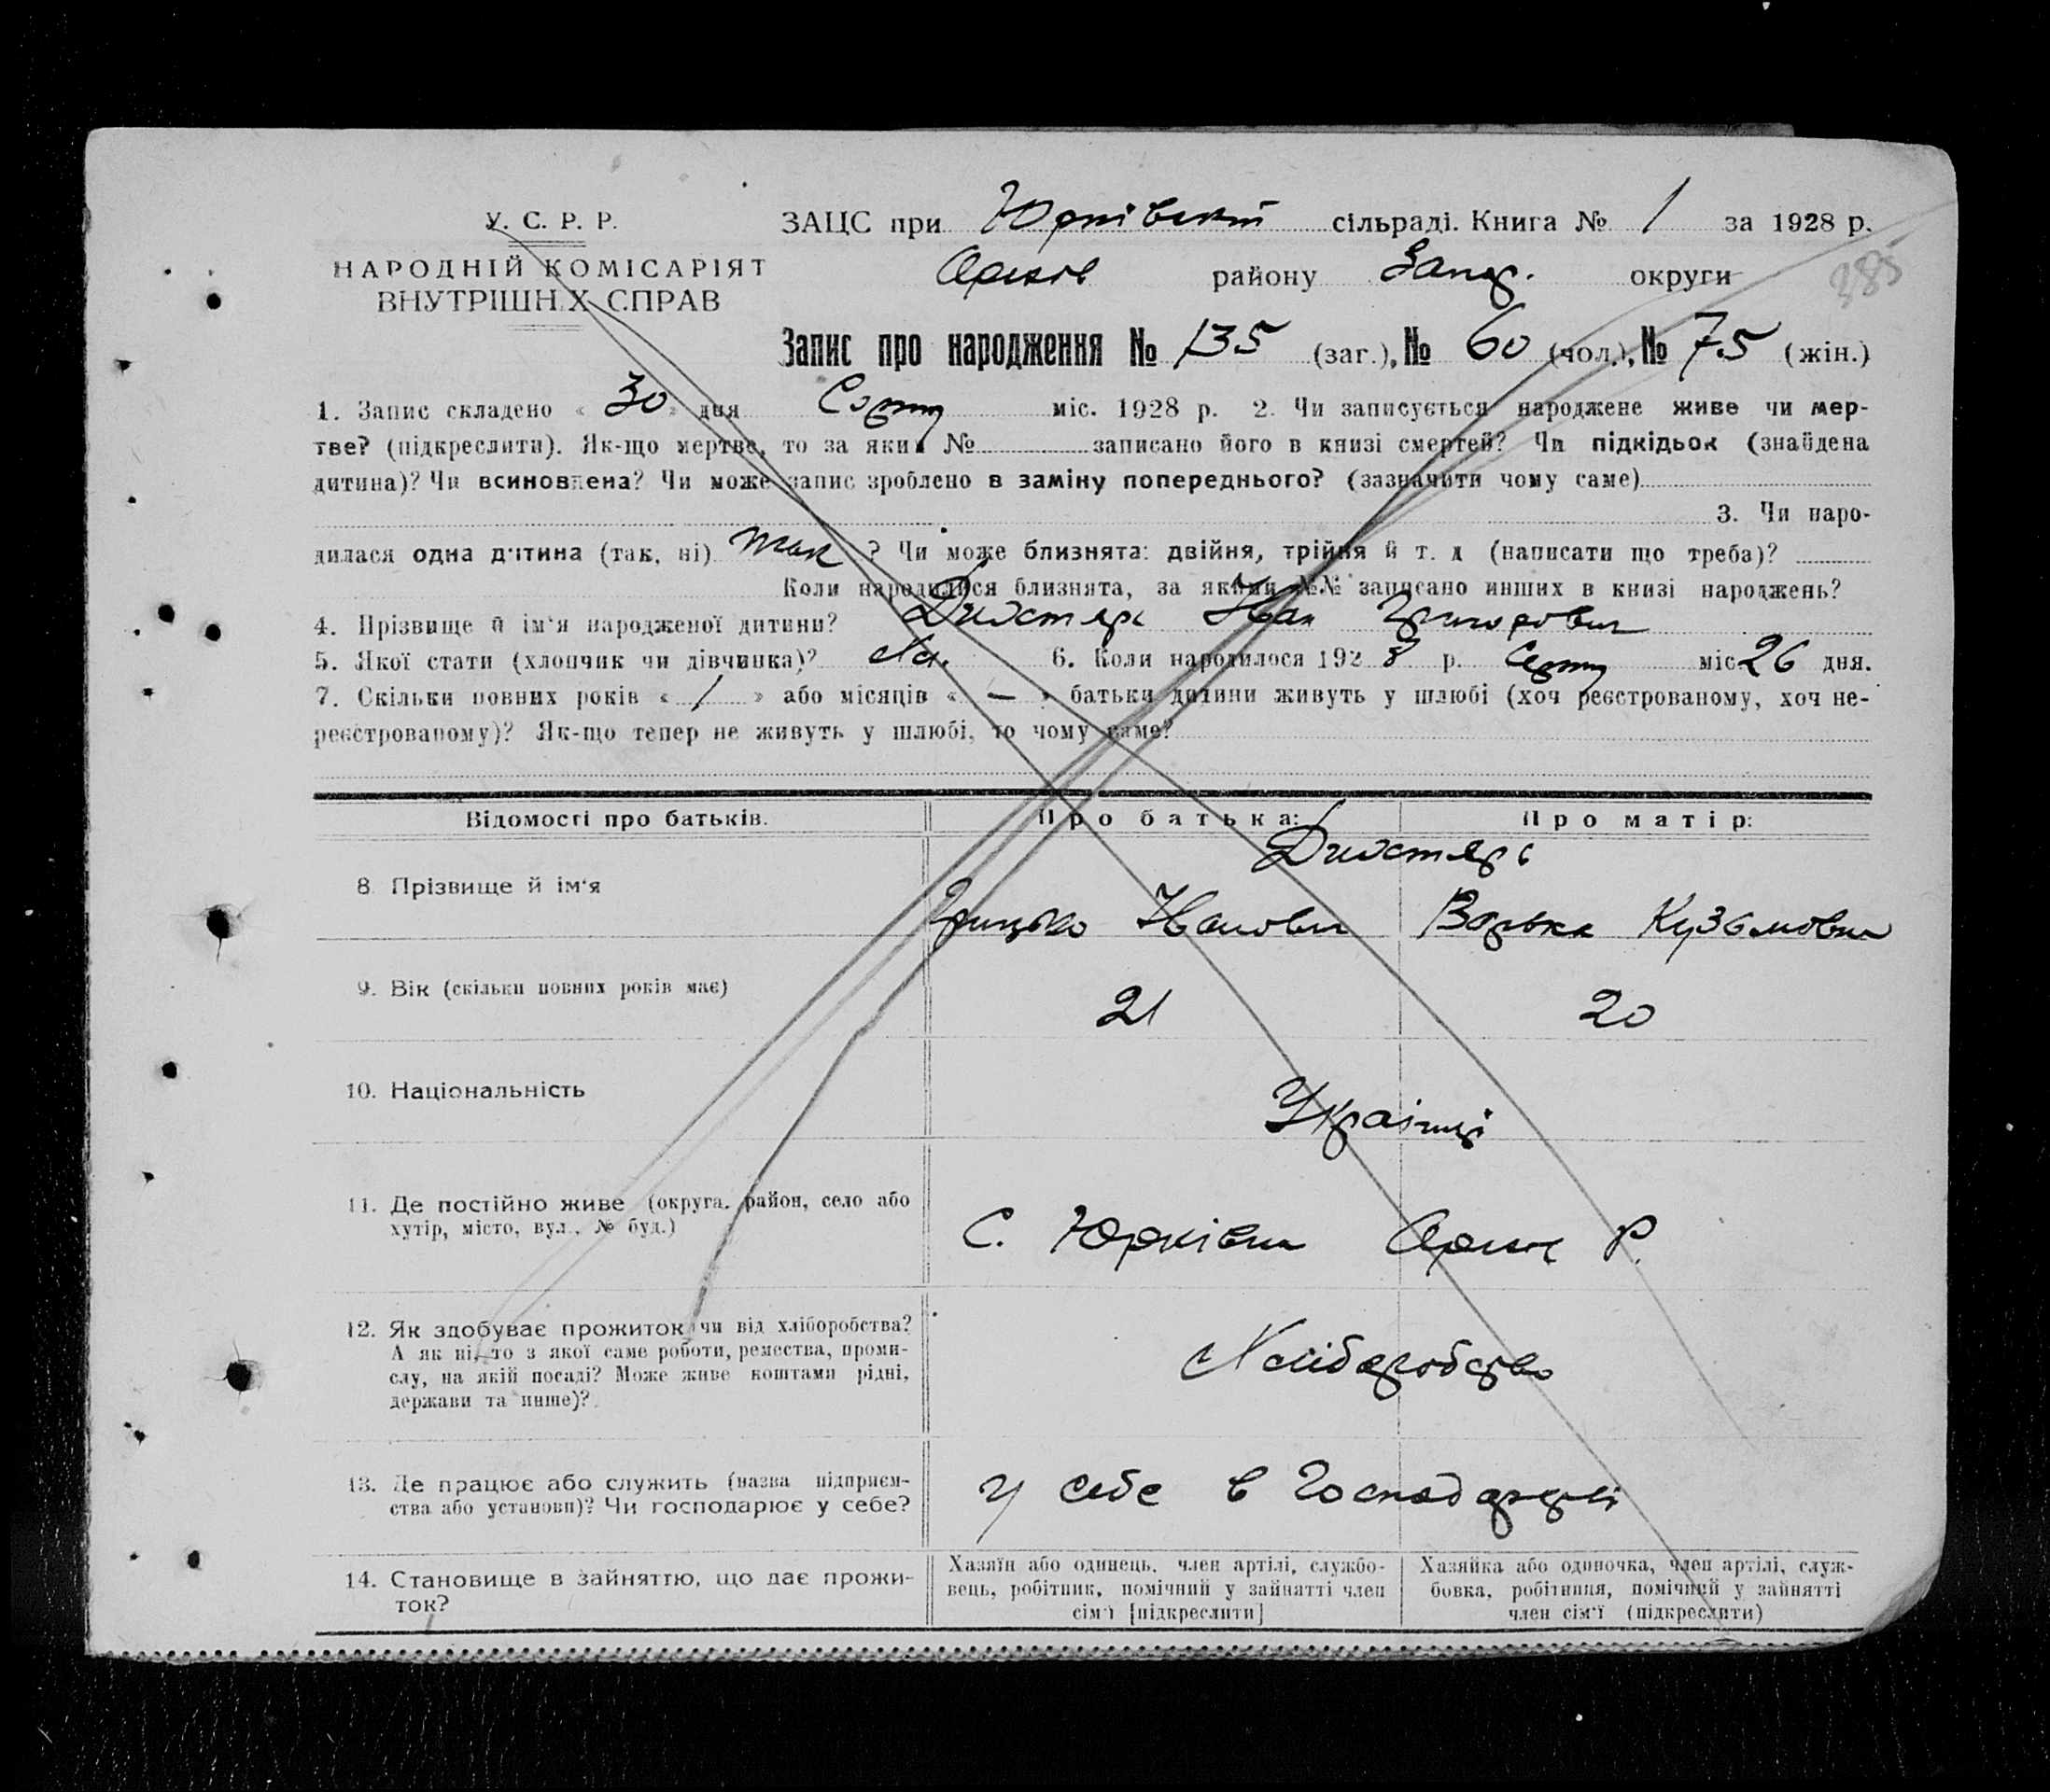 У. С. Р. Р.
НАРОДНІЙ КОМІСАРІЯТ
ВНУТРІШН.Х СПРАВ
ЗАЦС при Юрківській сільраді. Книга № 1 за 1928 р.
Оріхів району Запор. округи
385
Запис про народження № 135 (заг.), № 60 (чол.), № 75 (жін.)
1. Запис складено « 30 » дня міс. 1928 р. 2. Чи записується народжене живе чи мер-
тве? (підкреслити). Як-що мертве, то за яким № записано його в книзі смертей? Чи підкідьок (знайдена
дитина)? Чи всиновлена? Чи може запис зроблено в заміну попереднього? (зазначити чому саме)
3. Чи наро-
дилася одна дитина (так, ні) так ? Чи може близнята: двійня, трійня й т. д (написати що треба)?
Коли народилися близнята, за якими №№ записано инших в книзі народжень?
4. Прізвище й ім'я народженої дитини? Іван Григорович
5. Якої стати (хлопчик чи дівчинка)? 6. Коли народилося 192 8 р. міс 26 дня.
7. Скільки повних років « 1 » або місяців « — » батьки дитини живуть у шлюбі (хоч реєстрованому, хоч не-
реєстрованому)? Як-що тепер не живуть у шлюбі, то чому саме?
Відомості про батьків. Про батька: Про матір:
8. Прізвище й ім'я
Грицько Іванович Варька Кузьмовна
9. Вік (скільки повних років має) 21 20
10. Національність Українці
11. Де постійно живе (округа, район, село або
хутір, місто, вул., № буд.) С. Юрківка Оріхів Р.
12. Як здобуває прожиток чи від хліборобства?
А як ні, то з якої саме роботи, ремества, проми-
слу, на якій посаді? Може живе коштами рідні,
держави та инше)? Хліборобство
13. Де працює або служить (назва підприєм-
ства або установи)? Чи господарює у себе? У себе в господарстві
14. Становище в зайняттю, що дає прожи-
ток?
Хазяїн або одинець, член артілі, службо-
вець, робітник, помічний у зайнятті член
сім'ї [підкреслити]
Хазяйка або одиночка, член артілі, служ-
бовка, робітниця, помічний у зайнятті
член сім'ї (підкреслити)